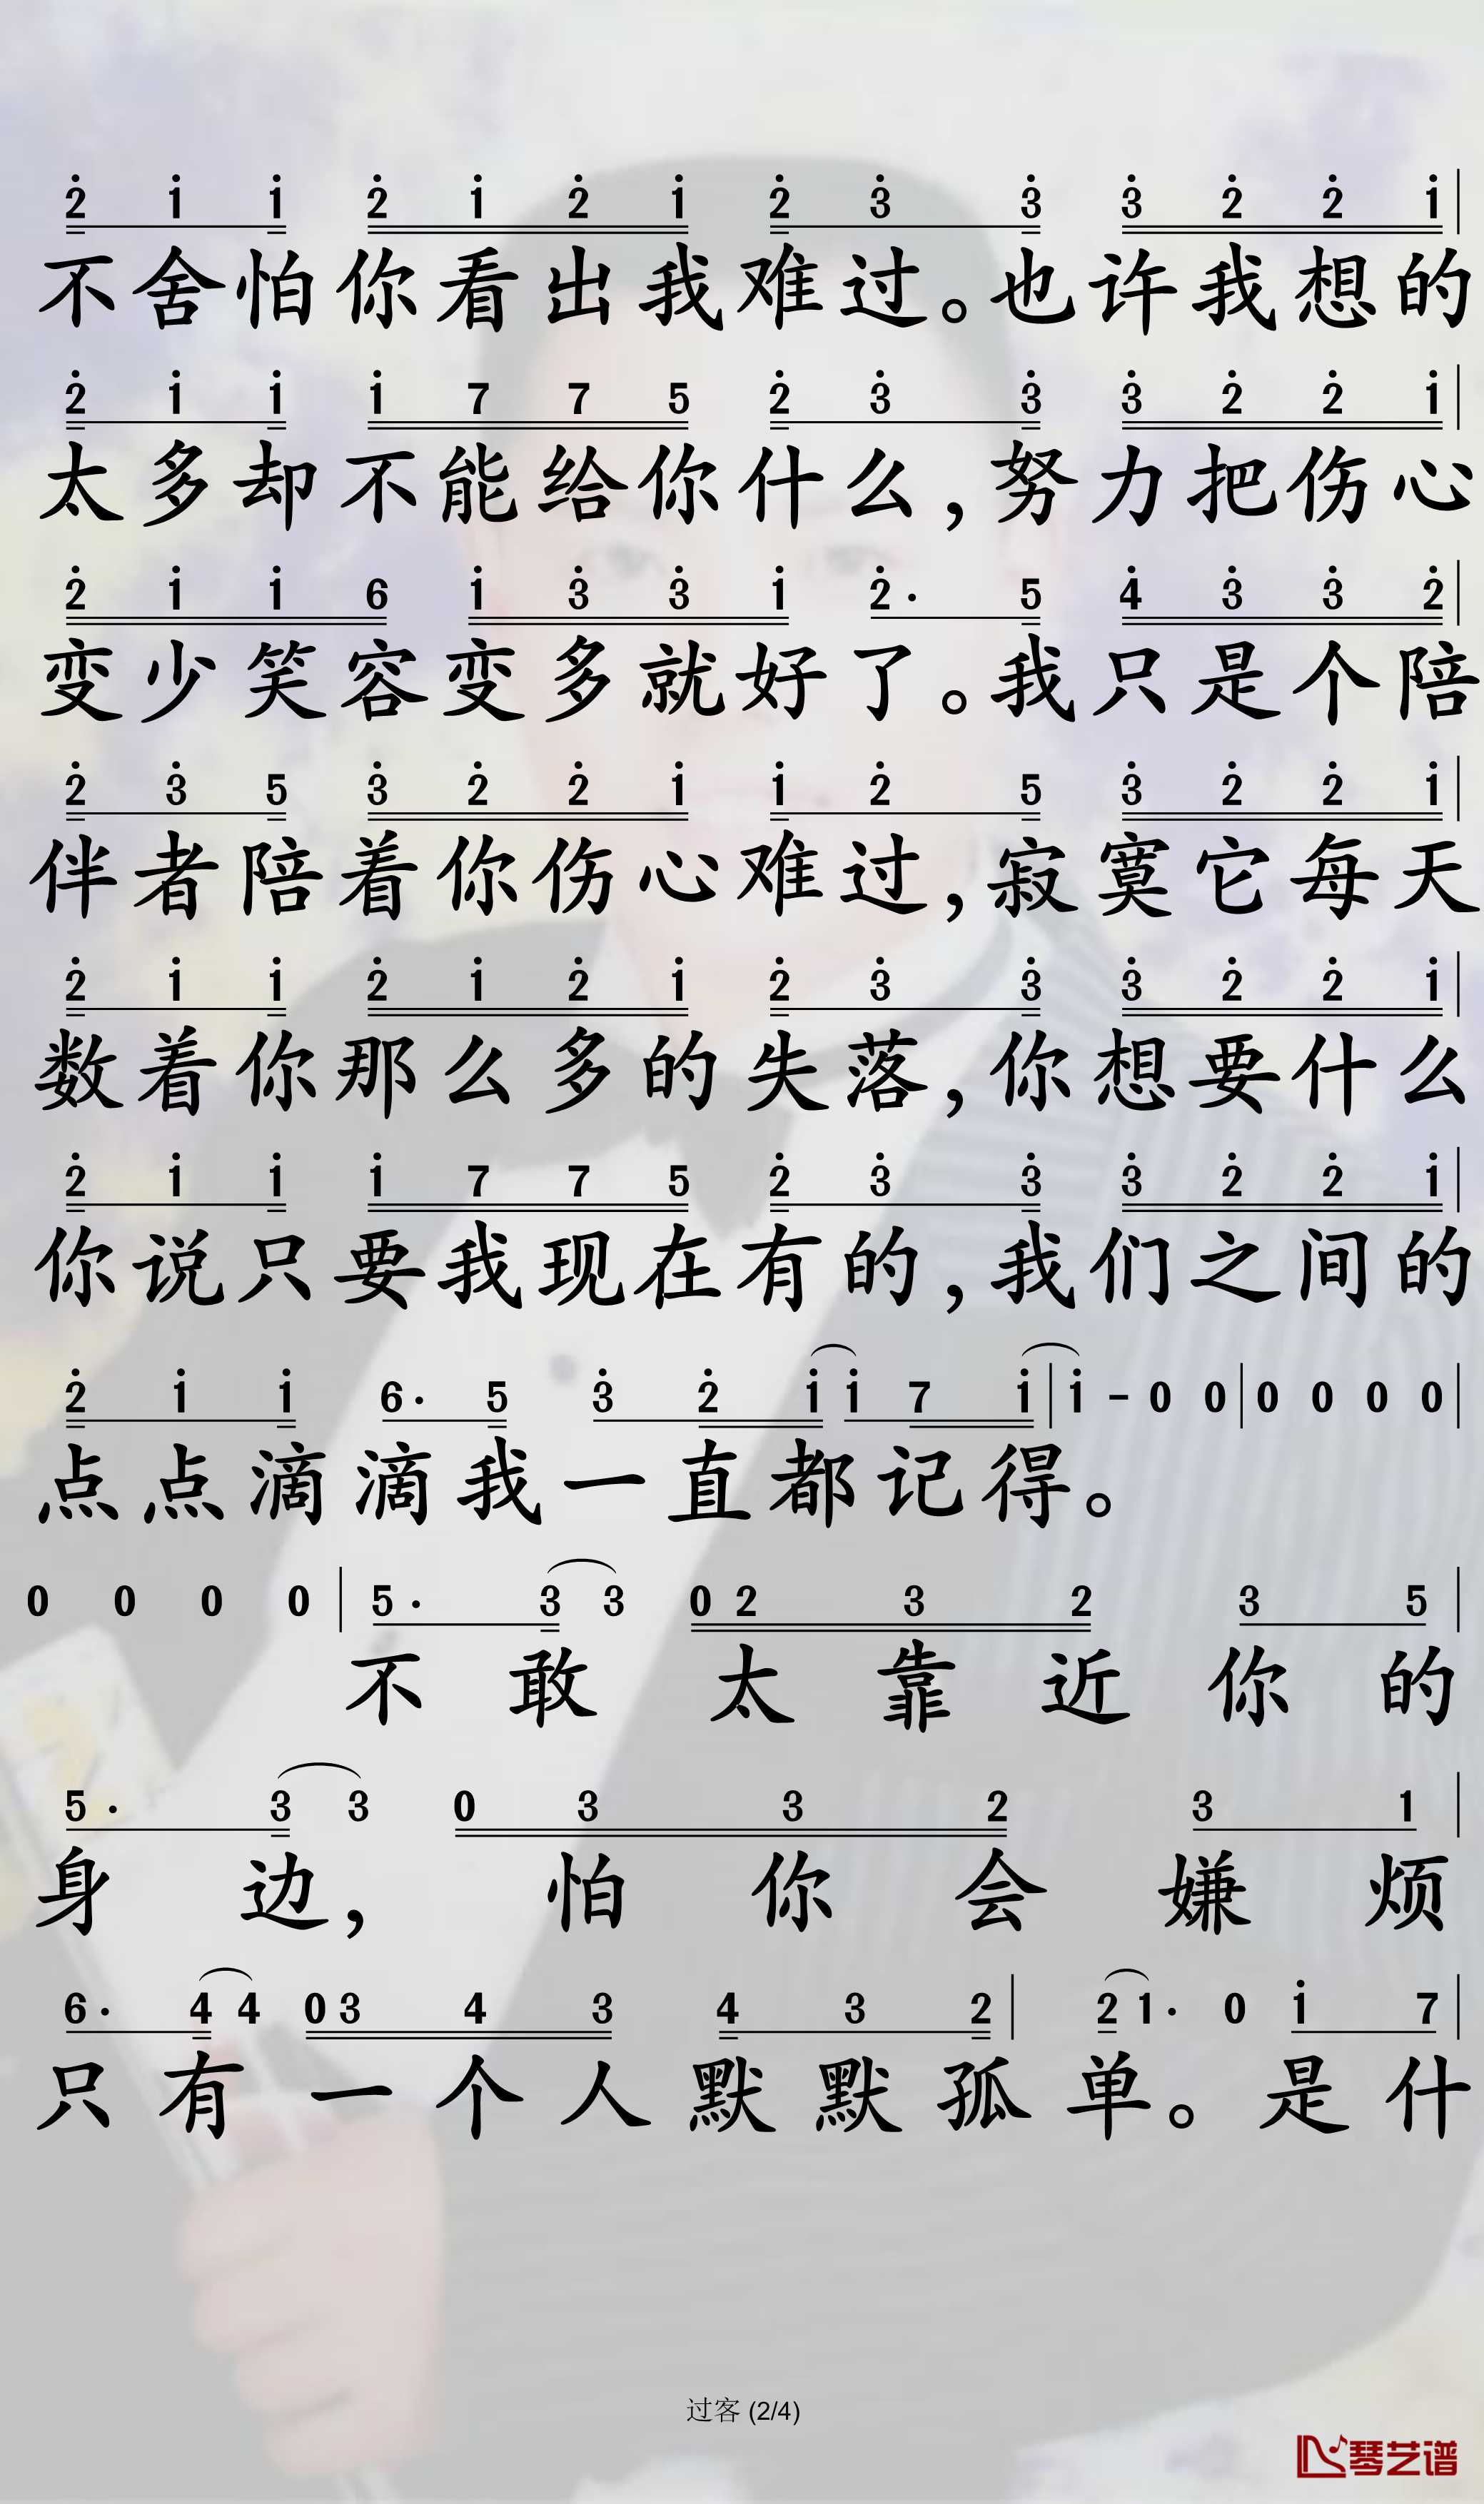 2̇ 1̇ 1̇ 2̇ 1̇ 2̇ 1̇ 2̇ 3̇ 3̇ 3̇ 2̇ 2̇ 1̇ |
不舍怕你看出我难过。也许我想的
2̇ 1̇ 1̇ 1̇ 7 7 5 2̇ 3̇ 3̇ 3̇ 2̇ 2̇ 1̇ |
太多却不能给你什么,努力把伤心
2̇ 1̇ 1̇ 6 1̇ 3̇ 3̇ 1̇ 2̇· 5 4̇ 3̇ 3̇ 2̇ |
变少笑容变多就好了。我只是个陪
2̇ 3̇ 5 3̇ 2̇ 2̇ 1̇ 1̇ 2̇ 5 3̇ 2̇ 2̇ 1̇ |
伴者陪着你伤心难过,寂寞它每天
2̇ 1̇ 1̇ 2̇ 1̇ 2̇ 1̇ 2̇ 3̇ 3̇ 3̇ 2̇ 2̇ 1̇ |
数着你那么多的失落,你想要什么
2̇ 1̇ 1̇ 1̇ 7 7 5 2̇ 3̇ 3̇ 3̇ 2̇ 2̇ 1̇ |
你说只要我现在有的,我们之间的
2̇ 1̇ 1̇ 6· 5 3̇ 2̇ 1̇ 1̇ 7 1̇ | 1̇ - 0 0 | 0 0 0 0 |
点点滴滴我一直都记得。
0 0 0 0 | 5· 3 3 0 2 3 2 3 5 |
不敢太靠近你的
5· 3 3 0 3 3 2 3 1 |
身边,怕你会嫌烦
6· 4 4 0 3 4 3 4 3 2 | 2 1· 0 1̇ 7 |
只有一个人默默孤单。是什
过客 (2/4)
琴艺谱